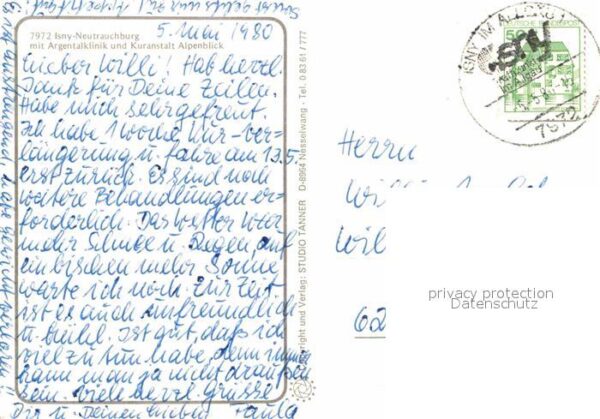 5. Mai 1980
7972 Isny-Neutrauchburg
mit Argentalklinik und Kuranstalt Alpenblick
Lieber Willi! Hab herzl.
Dank für Deine Zeilen.
Habe mich sehr gefreut.
Ich habe 1 Woche Kur-ver-
längerung u. fahre am 13.5.
erst zurück. Es sind noch
weitere Behandlungen er-
forderlich. Das Wetter war
mehr Schnee u. Regen, auf
ein bischen mehr Sonne
warte ich noch. Zur Zeit
ist es auch unfreundlich
u. kühl. Ist gut, daß ich
viel zu tun habe, denn immer
kann man ja nicht draußen
sein. Viele herzl. Grüsse
Dir u. Deinen Lieben Paula
Copyright und Verlag: STUDIO TANNER D-8964 Nesselwang - Tel. 0 83 61 / 777
ISNY IM ALLGÄU
isny
7972
DEUTSCHE BUNDESPOST
50
Herrn
Wil
62
privacy protection
Datenschutz